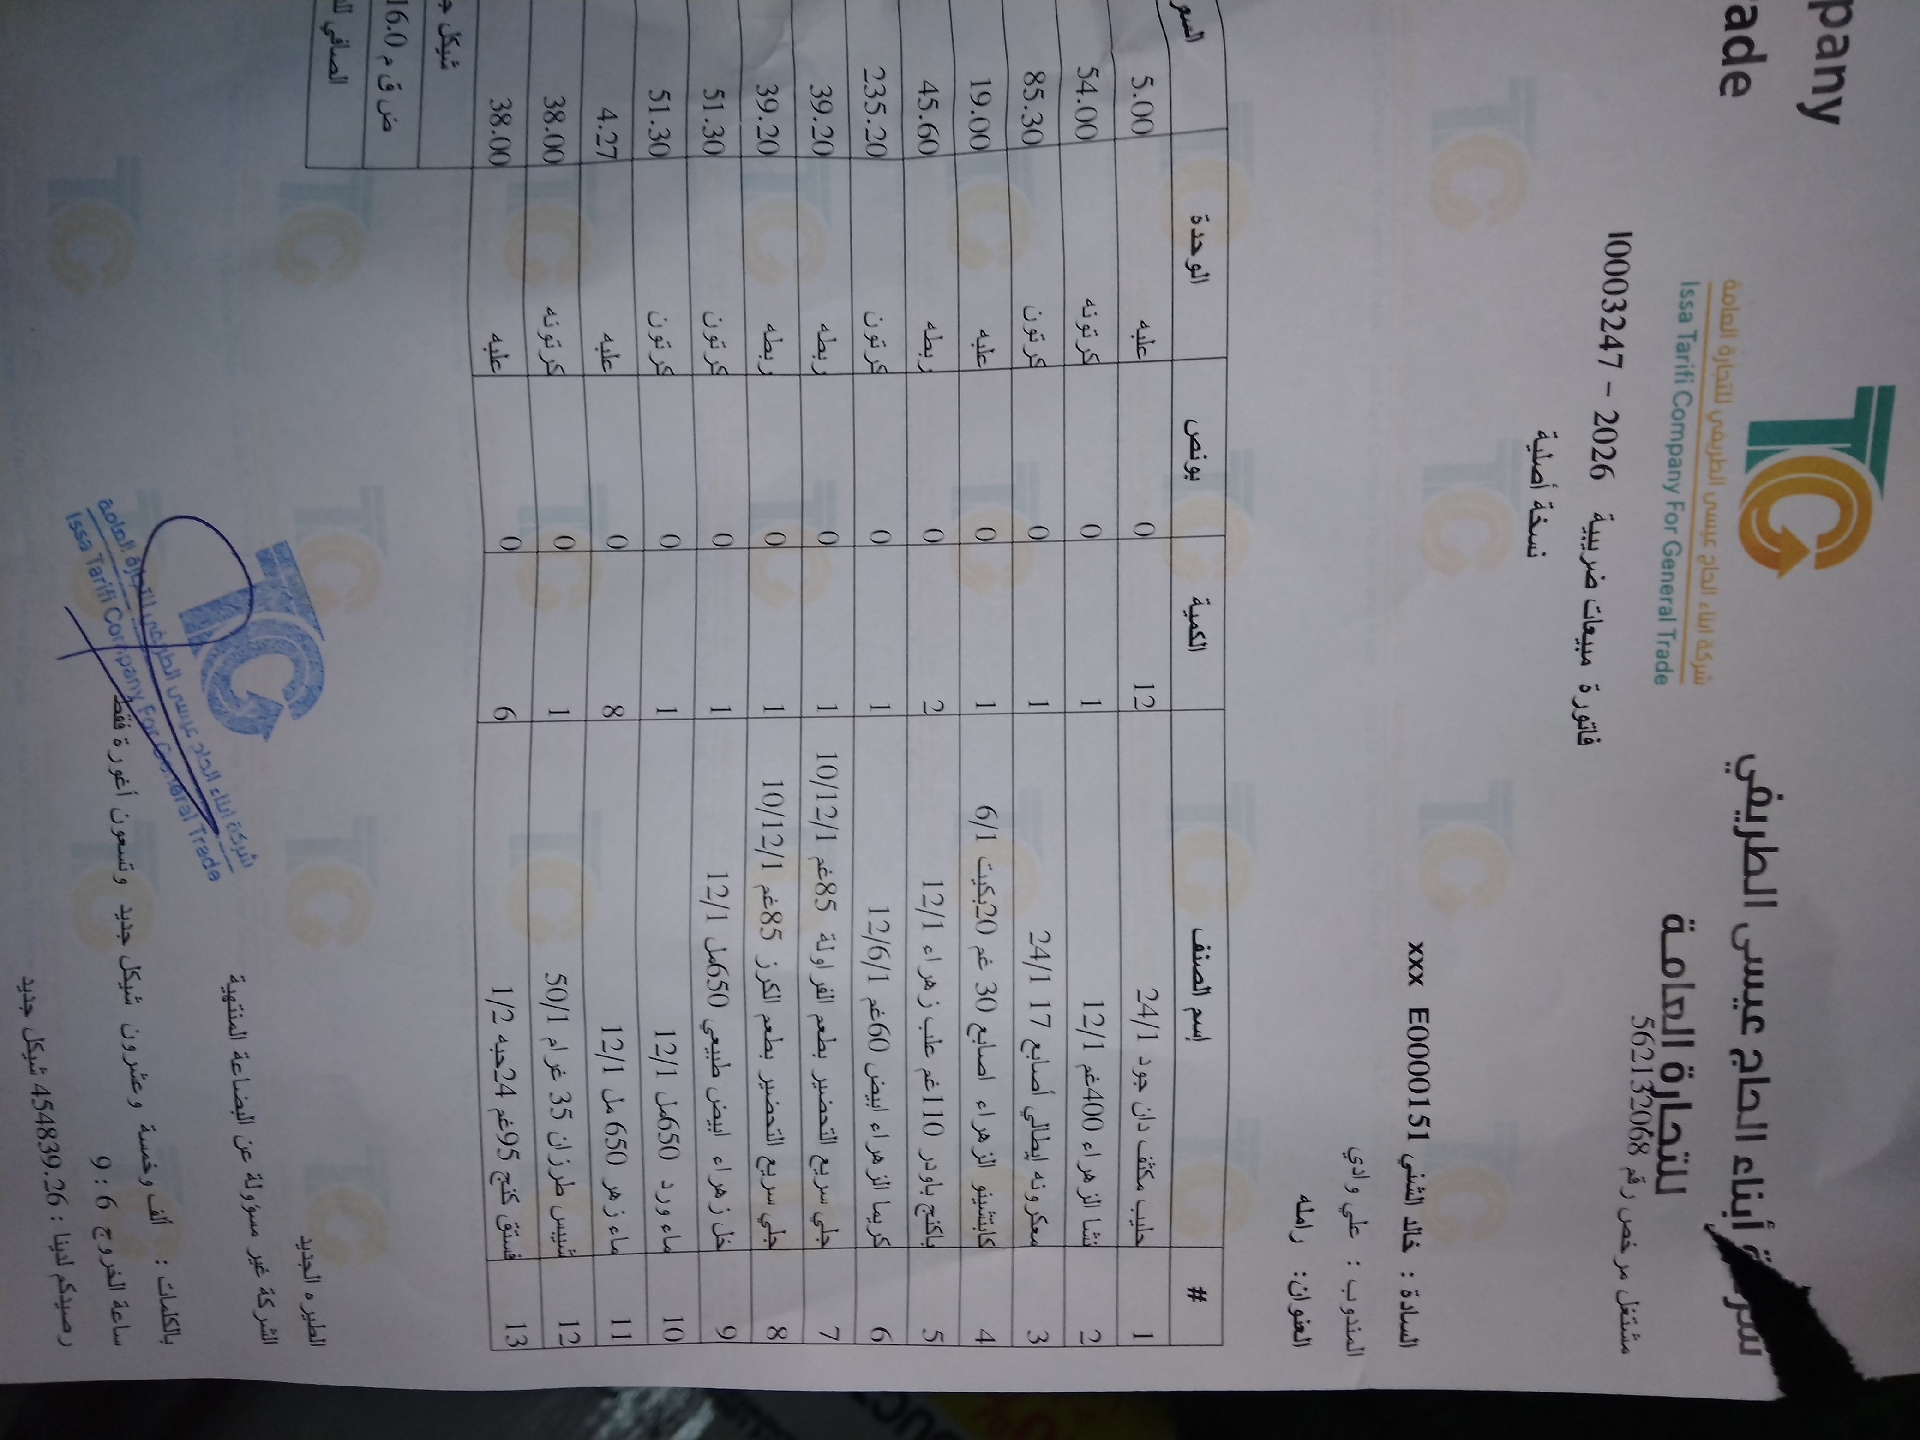 pany
ade
أبناء الحاج عيسى الطريفي
للتجارة العامة
شركة ابناء الحاج عيسى الطريفي للتجارة العامة
Issa Tarifi Company For General Trade
مشتغل مرخص رقم 562132068
فاتورة مبيعات ضريبية 2026 - I0003247
نسخة أصلية
السادة : خالد الشني E0000151 xxx
المندوب : علي وادي
العنوان: رامله
# إسم الصنف الكمية بونص الوحدة السع
1 حليب مكثف دان جود 24/1 12 0 علبه 5.00
2 نشا الزهراء 400غم 12/1 1 0 كرتونه 54.00
3 معكرونه ايطالي أصابع 17 24/1 1 0 كرتون 85.30
4 كابتشينو الزهراء اصابع 30 غم 20بكيت 6/1 1 0 علبه 19.00
5 باكنج باودر 110غم علب زهراء 12/1 2 0 ربطه 45.60
6 كريما الزهراء ابيض 60غم 12/6/1 1 0 كرتون 235.20
7 جلي سريع التحضير بطعم الفراولة 85غم 10/12/1 1 0 ربطه 39.20
8 جلي سريع التحضير بطعم الكرز 85غم 10/12/1 1 0 ربطه 39.20
9 خل زهراء ابيض طبيعي 650مل 12/1 1 0 كرتون 51.30
10 ماء ورد 650مل 12/1 1 0 كرتون 51.30
11 ماء زهر 650 مل 12/1 8 0 علبه 4.27
12 شيبس طرزان 35 غرام 50/1 1 0 كرتونه 38.00
13 فستق كنج 95غم 24حبه 1/2 6 0 علبه 38.00
شيكل ج
ض ق م 16.0
الصافي لل
الطيره الجديد
الشركة غير مسؤولة عن البضاعة المنتهية
بالكلمات : ألف وخمسة وعشرون شيكل جديد وتسعون أغورة فقط
ساعة الخروج 6 : 9
رصيدكم لدينا : 454839.26 شيكل جديد
شركة ابناء الحاج عيسى الطريفي للتجارة العامة
Issa Tarifi Company For General Trade